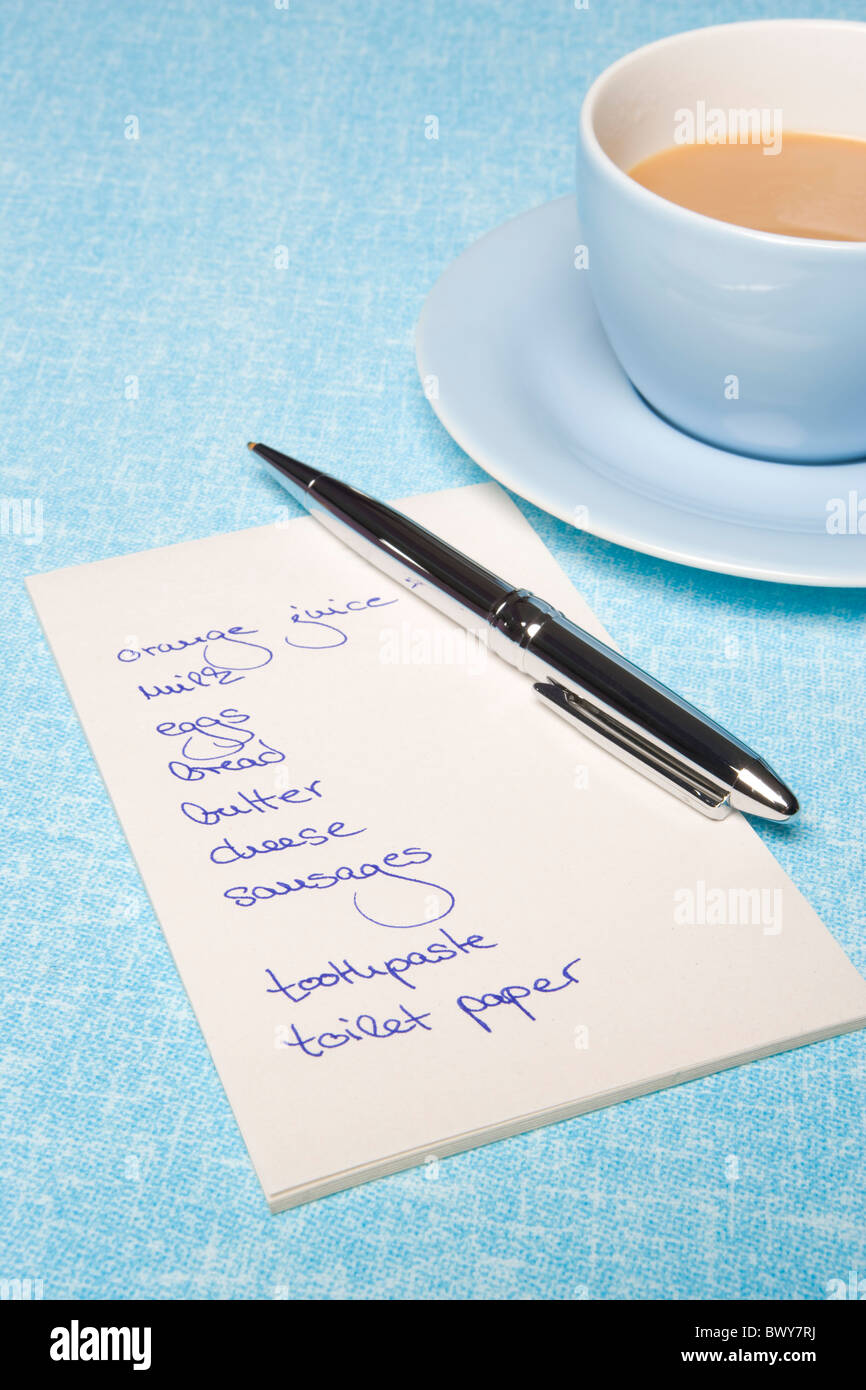 orange juice
milk
eggs
bread
butter
cheese
sausages
toothpaste
toilet paper
alamy
Image ID: BWY7RJ
www.alamy.com